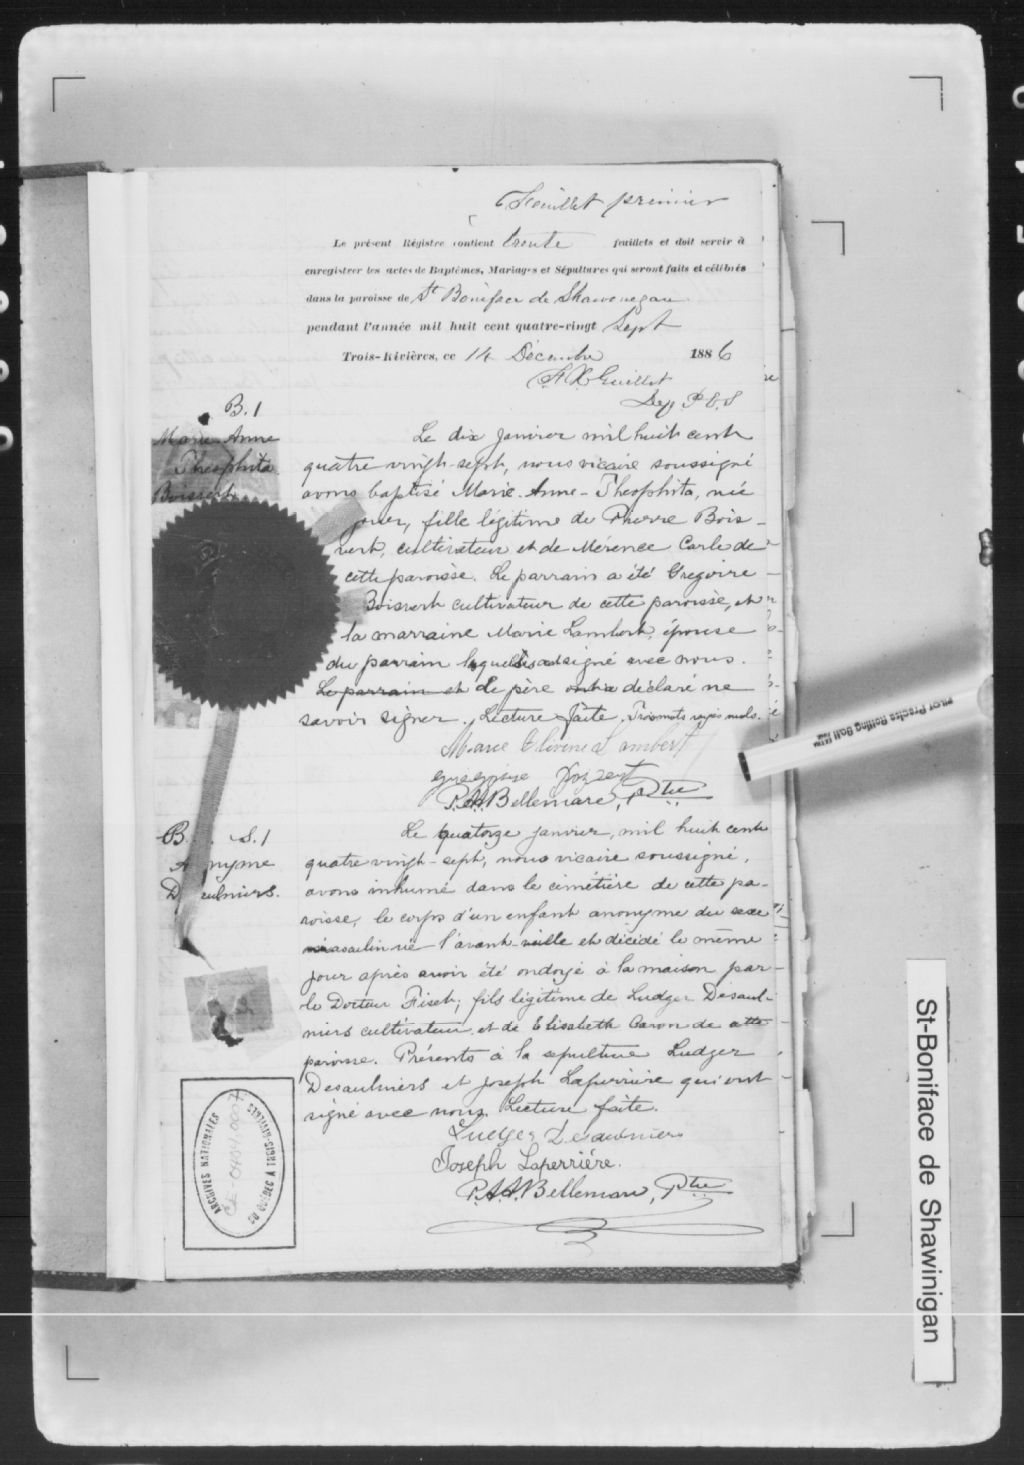 Feuillet premier
Le présent Régistre contient trente feuillets et doit servir à
enregistrer les actes de Baptêmes, Mariages et Sépultures qui seront faits et célébrés
dans la paroisse de St Boniface de Shawenegan
pendant l'année mil huit cent quatre-vingt Sept
Trois-Rivières, ce 14 Décembre 1886
F. X. Guillet
Dep P.C.S
B. 1
Marie Anne
Theophita
Boisvert
Le dix janvier mil huit cent
quatre vingt-sept, nous vicaire soussigné
avons baptisé Marie-Anne-Theophita, née
jour, fille légitime de Pierre Bois-
vert, cultivateur et de Mérence Carle de
cette paroisse. Le parrain a été Gregoire
Boisvert cultivateur de cette paroisse, et
la marraine Marie Lambert, épouse
du parrain lesquels ont signé avec nous.
Le parrain et Le père ont a déclaré ne
savoir signer. Lecture faite. Trois mots rayés nuls.
Marie Lambert
P.A.A. Bellemare, Ptre
B. S. 1
A nyme
D eulniers.
Le quatorze janvier, mil huit cent
quatre vingt-sept, nous vicaire soussigné,
avons inhumé dans le cimétière de cette pa-
roisse, le corps d'un enfant anonyme du sexe
masculin né l'avant-veille et décédé le même
jour après avoir été ondoyé à la maison par
le Docteur Fiset; fils légitime de Ludger Desaul-
niers cultivateur, et de Elisabeth Caron de cette
paroisse. Présents à la sepulture Ludger
Desaulniers et Joseph Laferrière qui ont
signé avec nous. Lecture faite.
Ludger Desaulniers
Joseph Laferrière.
P.A.A. Bellemare, Ptre
ARCHIVES NATIONALES
DU QUÉBEC A TROIS-RIVIÈRES
PILOT Precise Rolling Ball
St-Boniface de Shawinigan